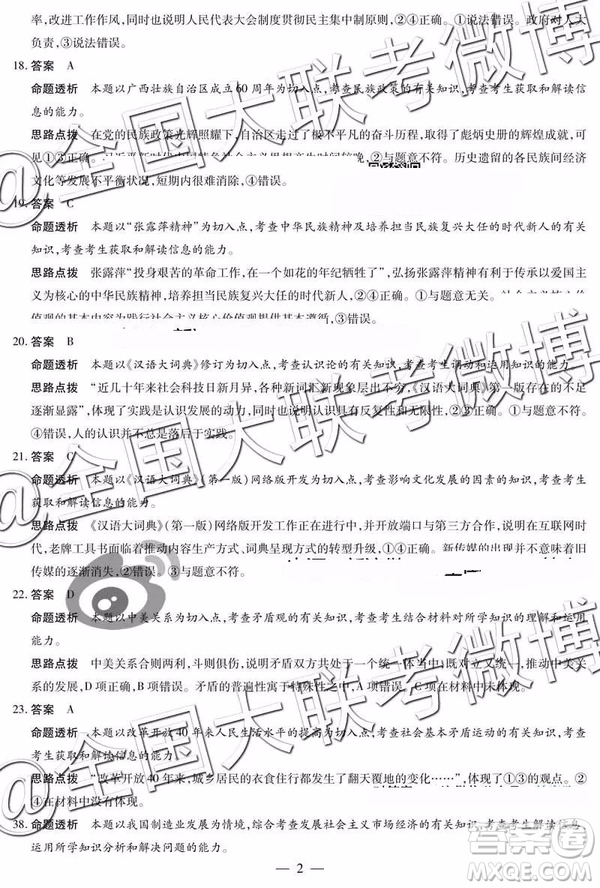 率,改进工作作风,同时也说明人民代表大会制度贯彻民主集中制原则,②④正确。①说法错误。政府对人大
负责,③说法错误。
18. 答案 A
命题透析 本题以广西壮族自治区成立60周年为切入点,考查民族政策的有关知识,考查考生获取和解读信
息的能力。
思路点拨 在党的民族政策光辉照耀下,自治区走过了极不平凡的奋斗历程,取得了彪炳史册的辉煌成就,可
见①③正确。 ②与题意不符。历史遗留的各民族间经济
文化等发展不平衡状况,短期内很难消除,④错误。
19. 答案 C
命题透析 本题以“张露萍精神”为切入点,考查中华民族精神及培养担当民族复兴大任的时代新人的有关
知识,考查考生获取和解读信息的能力。
思路点拨 张露萍“投身艰苦的革命工作,在一个如花的年纪牺牲了”,弘扬张露萍精神,有利于传承以爱国主
义为核心的中华民族精神,培养担当民族复兴大任的时代新人,②④正确。①与题意无关。
值观的基本内容为践行社会主义核心价值观提供基本遵循,③错误。
20. 答案 B
命题透析 本题以《汉语大词典》修订为切入点,考查认识论的有关知识,考查考生调动和运用知识的能力。
思路点拨 “近几十年来社会科技日新月异,各种新词汇新现象层出不穷,《汉语大词典》第一版存在的不足
逐渐显露”,体现了实践是认识发展的动力,也说明认识具有反复性和无限性,②③正确。①与题意不符。
④错误,人的认识并不总是落后于实践。
21. 答案 C
命题透析 本题以《汉语大词典》(第一版)网络版开发为切入点,考查影响文化发展的因素的知识,考查考生
获取和解读信息的能力。
思路点拨 《汉语大词典》(第一版)网络版开发工作正在进行中,并开放端口与第三方合作,说明在互联网时
代,老牌工具书面临着推动内容生产方式、词典呈现方式的转型升级,①④正确。新传媒的出现并不意味着旧
传媒的逐渐消失,②错误。③与题意不符。
22. 答案 D
命题透析 本题以中美关系为切入点,考查矛盾观的有关知识,考查考生结合材料对所学知识的理解与运用
能力。
思路点拨 中美关系合则两利,斗则俱伤,说明矛盾双方在一定条件下共处,既对立又统一,推动中美关系的
发展,D项正确,B项错误。矛盾的普遍性寓于特殊性之中,A项错误。C项在材料中未体现。
23. 答案 A
命题透析 本题以改革开放40年来人民生活水平的提高为切入点,考查社会基本矛盾运动的有关知识,考查
考生获取和解读信息的能力。
思路点拨 “改革开放40年来,城乡居民的衣食住行都发生了翻天覆地的变化……”,体现了①③的观点。②
④在材料中没有体现。
38. 命题透析 本题以我国制造业发展为情境,综合考查发展社会主义市场经济的有关知识,考查考生解读信息、
运用所学知识分析和解决问题的能力。
— 2 —
@全国大联考微博
@全国大联考微博
@全国大联考微博
答案圈